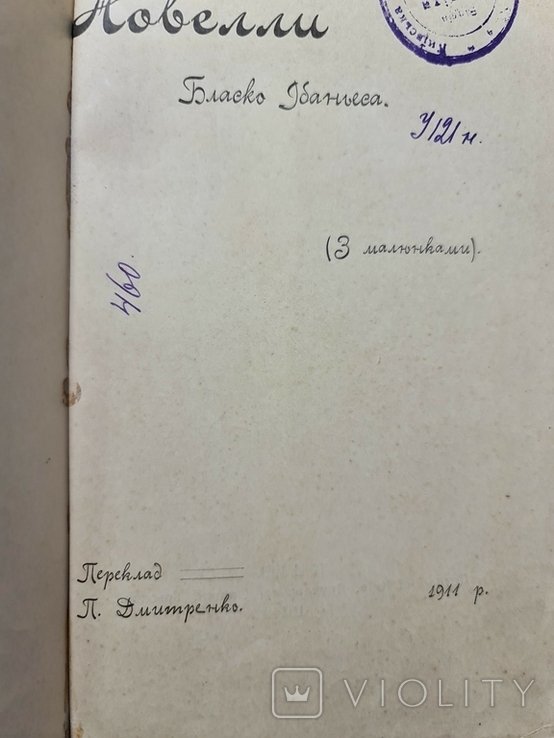 Новелли
Бласко Ібаньеса.
У121 н.
(З малюнками).
460.
Переклад
П. Дмитренко.
1911 р.
Київська
VIOLITY